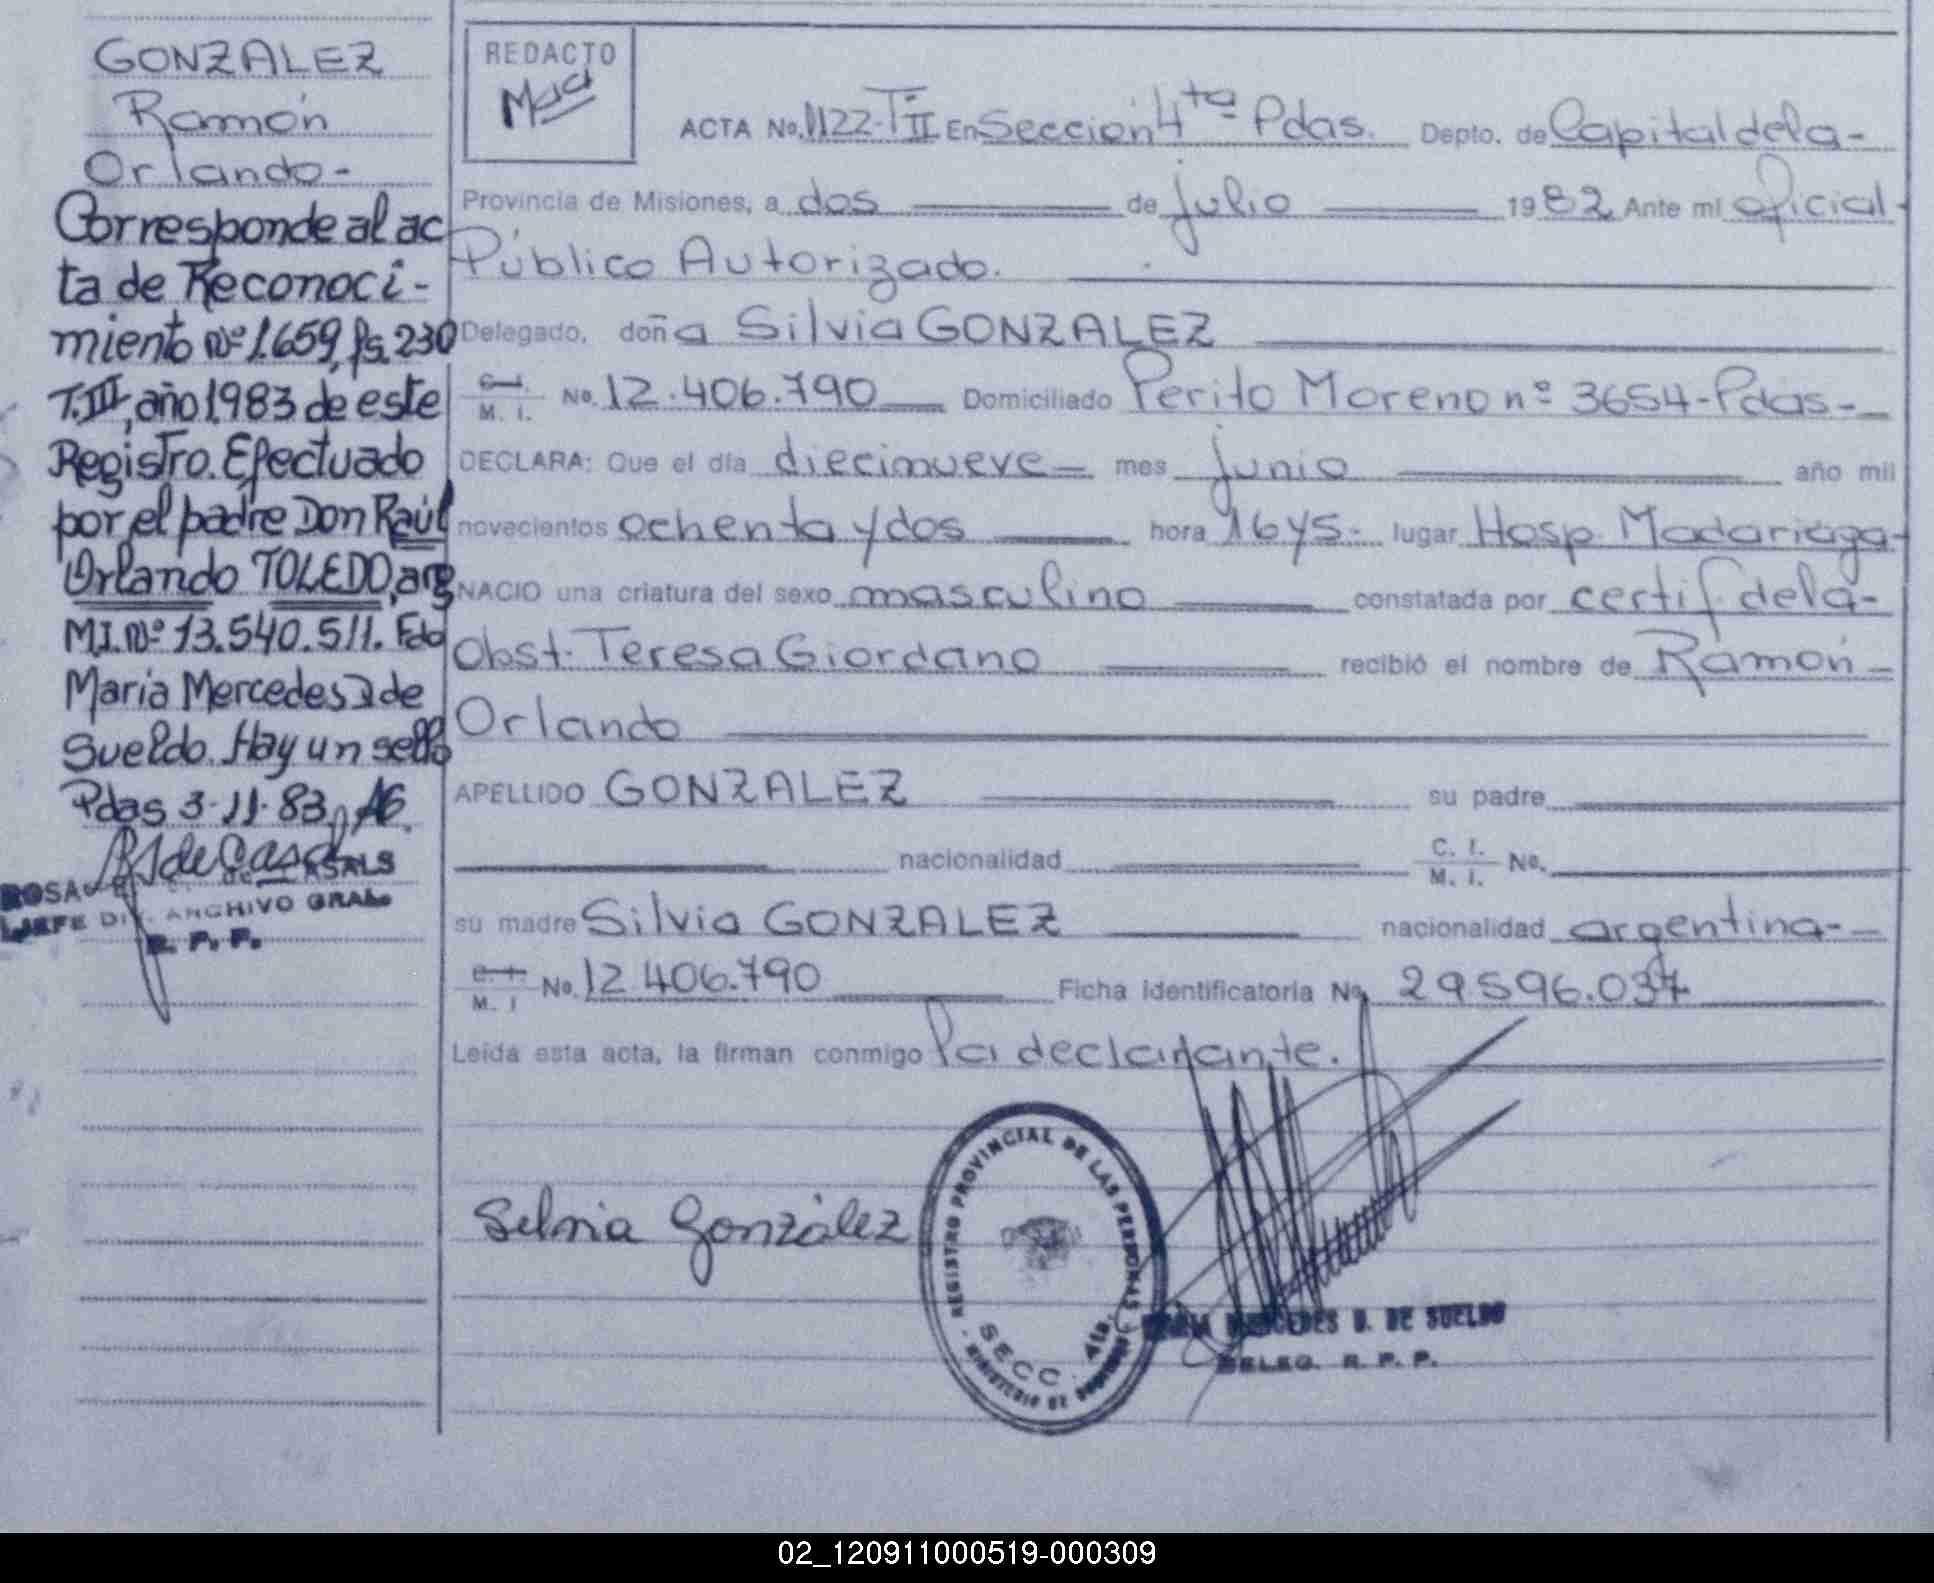 GONZALEZ
Ramón
Orlando-
Corresponde al ac
ta de Reconoci-
miento Nº 1.659, fs. 230
T.III, año 1.983 de este
Registro. Efectuado
por el padre Don Raúl
Orlando TOLEDO, arg
M.I. Nº 13.540.511. Fdo
Maria Mercedes D de
Sueldo. Hay un sello
Pdas 3-11-83
ROSA de CASALS
JEFE DIV. ARCHIVO GRAL.
R. P. P.
REDACTO
ACTA No. 1122-T II En Sección 4ta Pdas. Depto. de Capital de la-
Provincia de Misiones, a dos de julio 1982 Ante mi oficial
Público Autorizado.
Delegado, doña Silvia GONZALEZ
C. I. M. I. No. 12.406.790 Domiciliado Perito Moreno nº 3654-Pdas-
DECLARA: Que el día diecinueve mes junio año mil
novecientos ochenta y dos hora 16 y 5- lugar Hosp. Madariaga-
NACIO una criatura del sexo masculino constatada por certif. de la-
Obst. Teresa Giordano recibió el nombre de Ramón-
Orlando
APELLIDO GONZALEZ su padre
nacionalidad C. I. M. I. No.
su madre Silvia GONZALEZ nacionalidad argentina-
C. I. M. I No. 12.406.790 Ficha identificatoria No. 29596.037
Leída esta acta, la firman conmigo la declarante.
Silvia González
REGISTRO PROVINCIAL DE LAS PERSONAS
SECC. 4ta.
MINISTERIO DE GOBIERNO
MARIA MERCEDES D. DE SUELDO
DELEG. R. P. P.
02_120911000519-000309